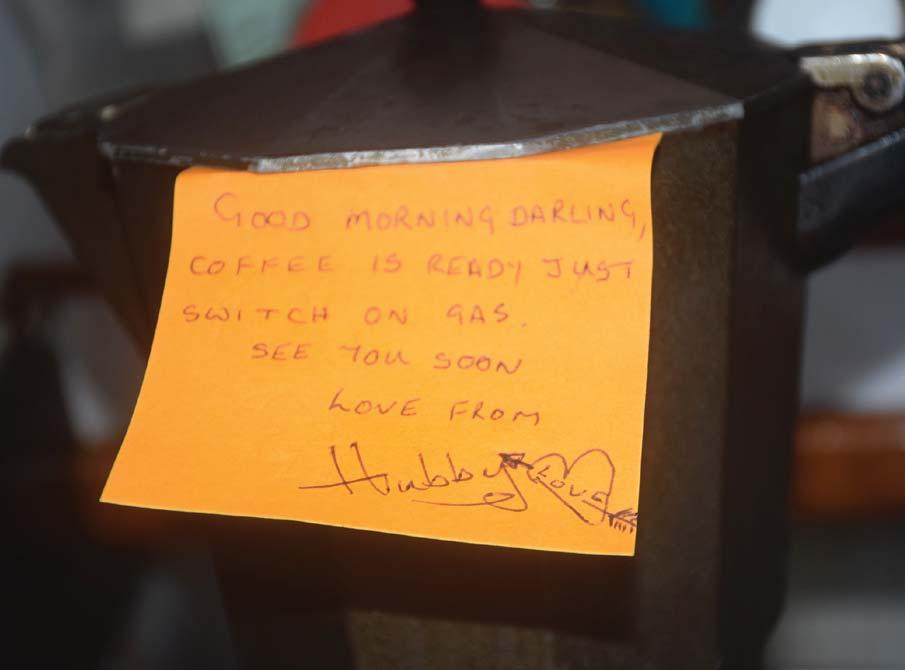 GOOD MORNING DARLING,
COFFEE IS READY JUST
SWITCH ON GAS.
SEE YOU SOON
LOVE FROM
Hubby LOVE